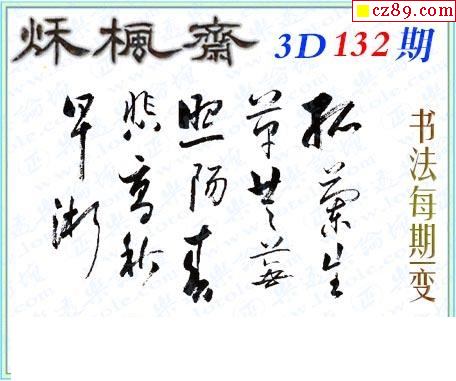 cz89.com
秌楓齋
3D132期
孤蘭生
草共蕪
照陽春
悲高秋
早淅
书法每期一变